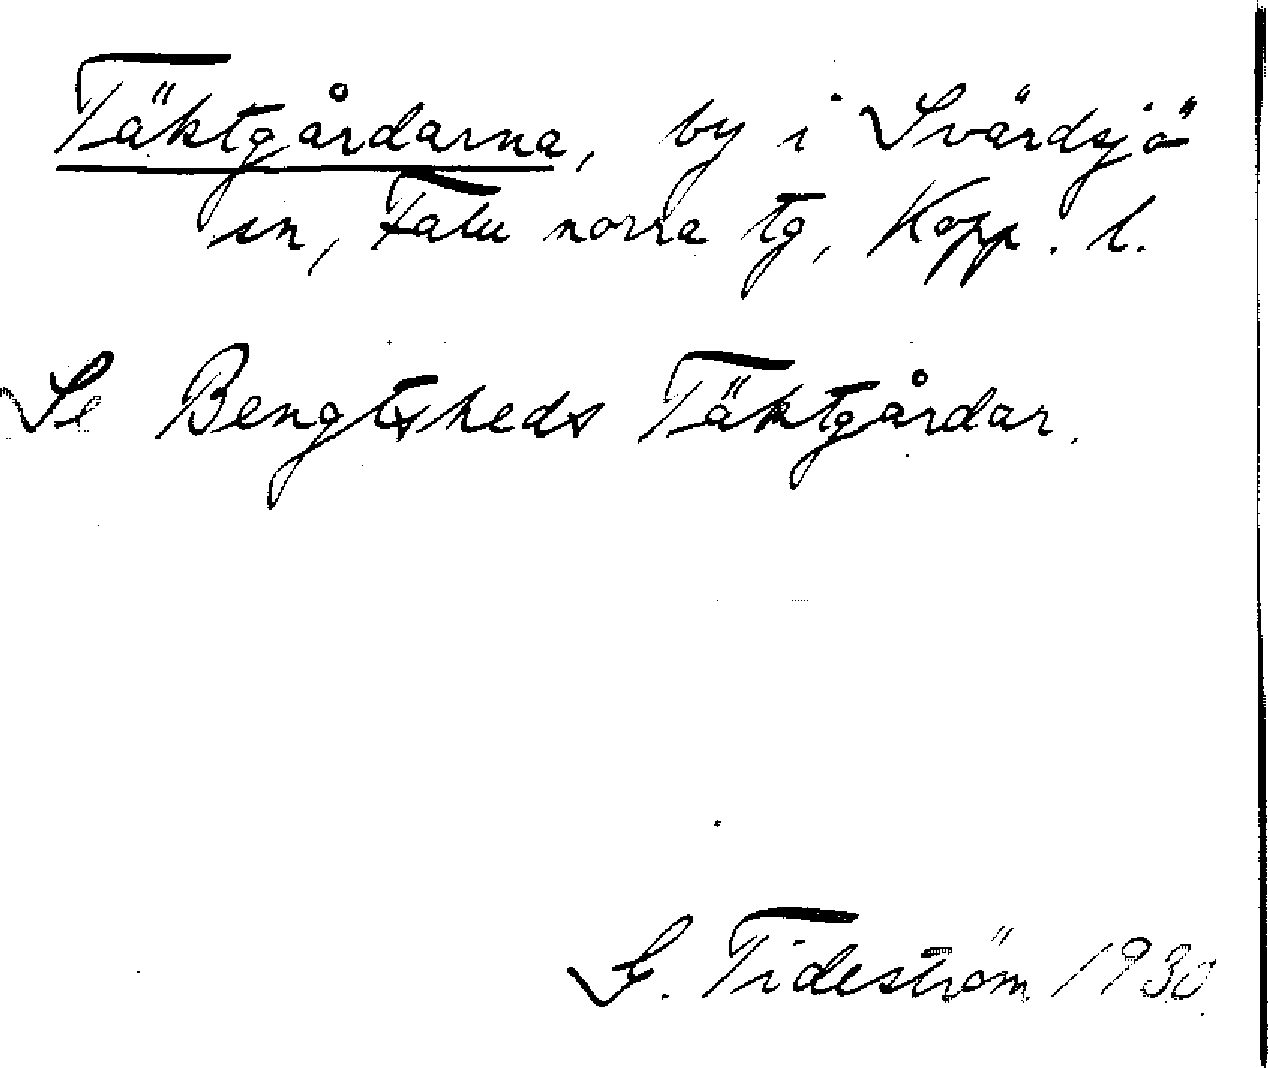 Täktgårdarna, by i Svärdsjö
sn, Falu norra tg, Kopp. l.
Se Bengtsheds Täktgårdar.
G. Tideström 1930